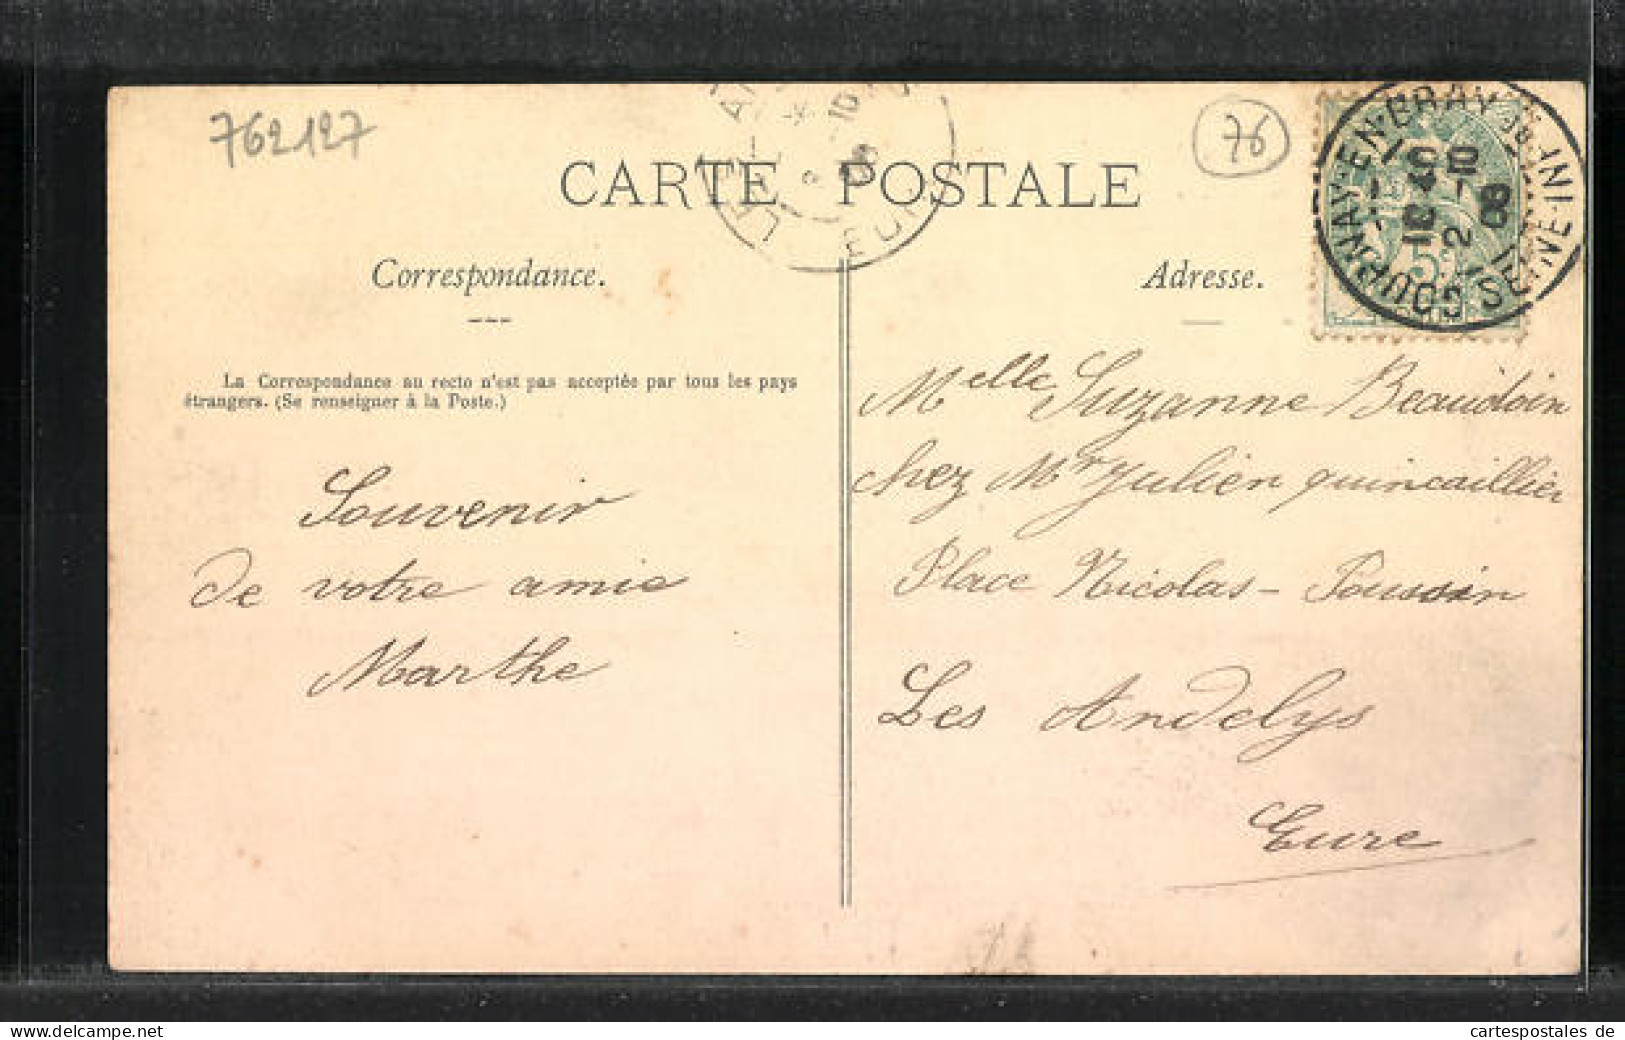 762127
76
CARTE POSTALE
GOURNAY-EN-BRAY
SEINE-INF
18 40
2 -10
06
Correspondance.
Adresse.
La Correspondance au recto n'est pas acceptée par tous les pays
étrangers. (Se renseigner à la Poste.)
Souvenir
de votre amie
Marthe
Melle Suzanne Beaudoin
chez Mr Julien quincaillier
Place Nicolas-Poussin
Les Andelys
Eure
delcampe.net
cartespostales de